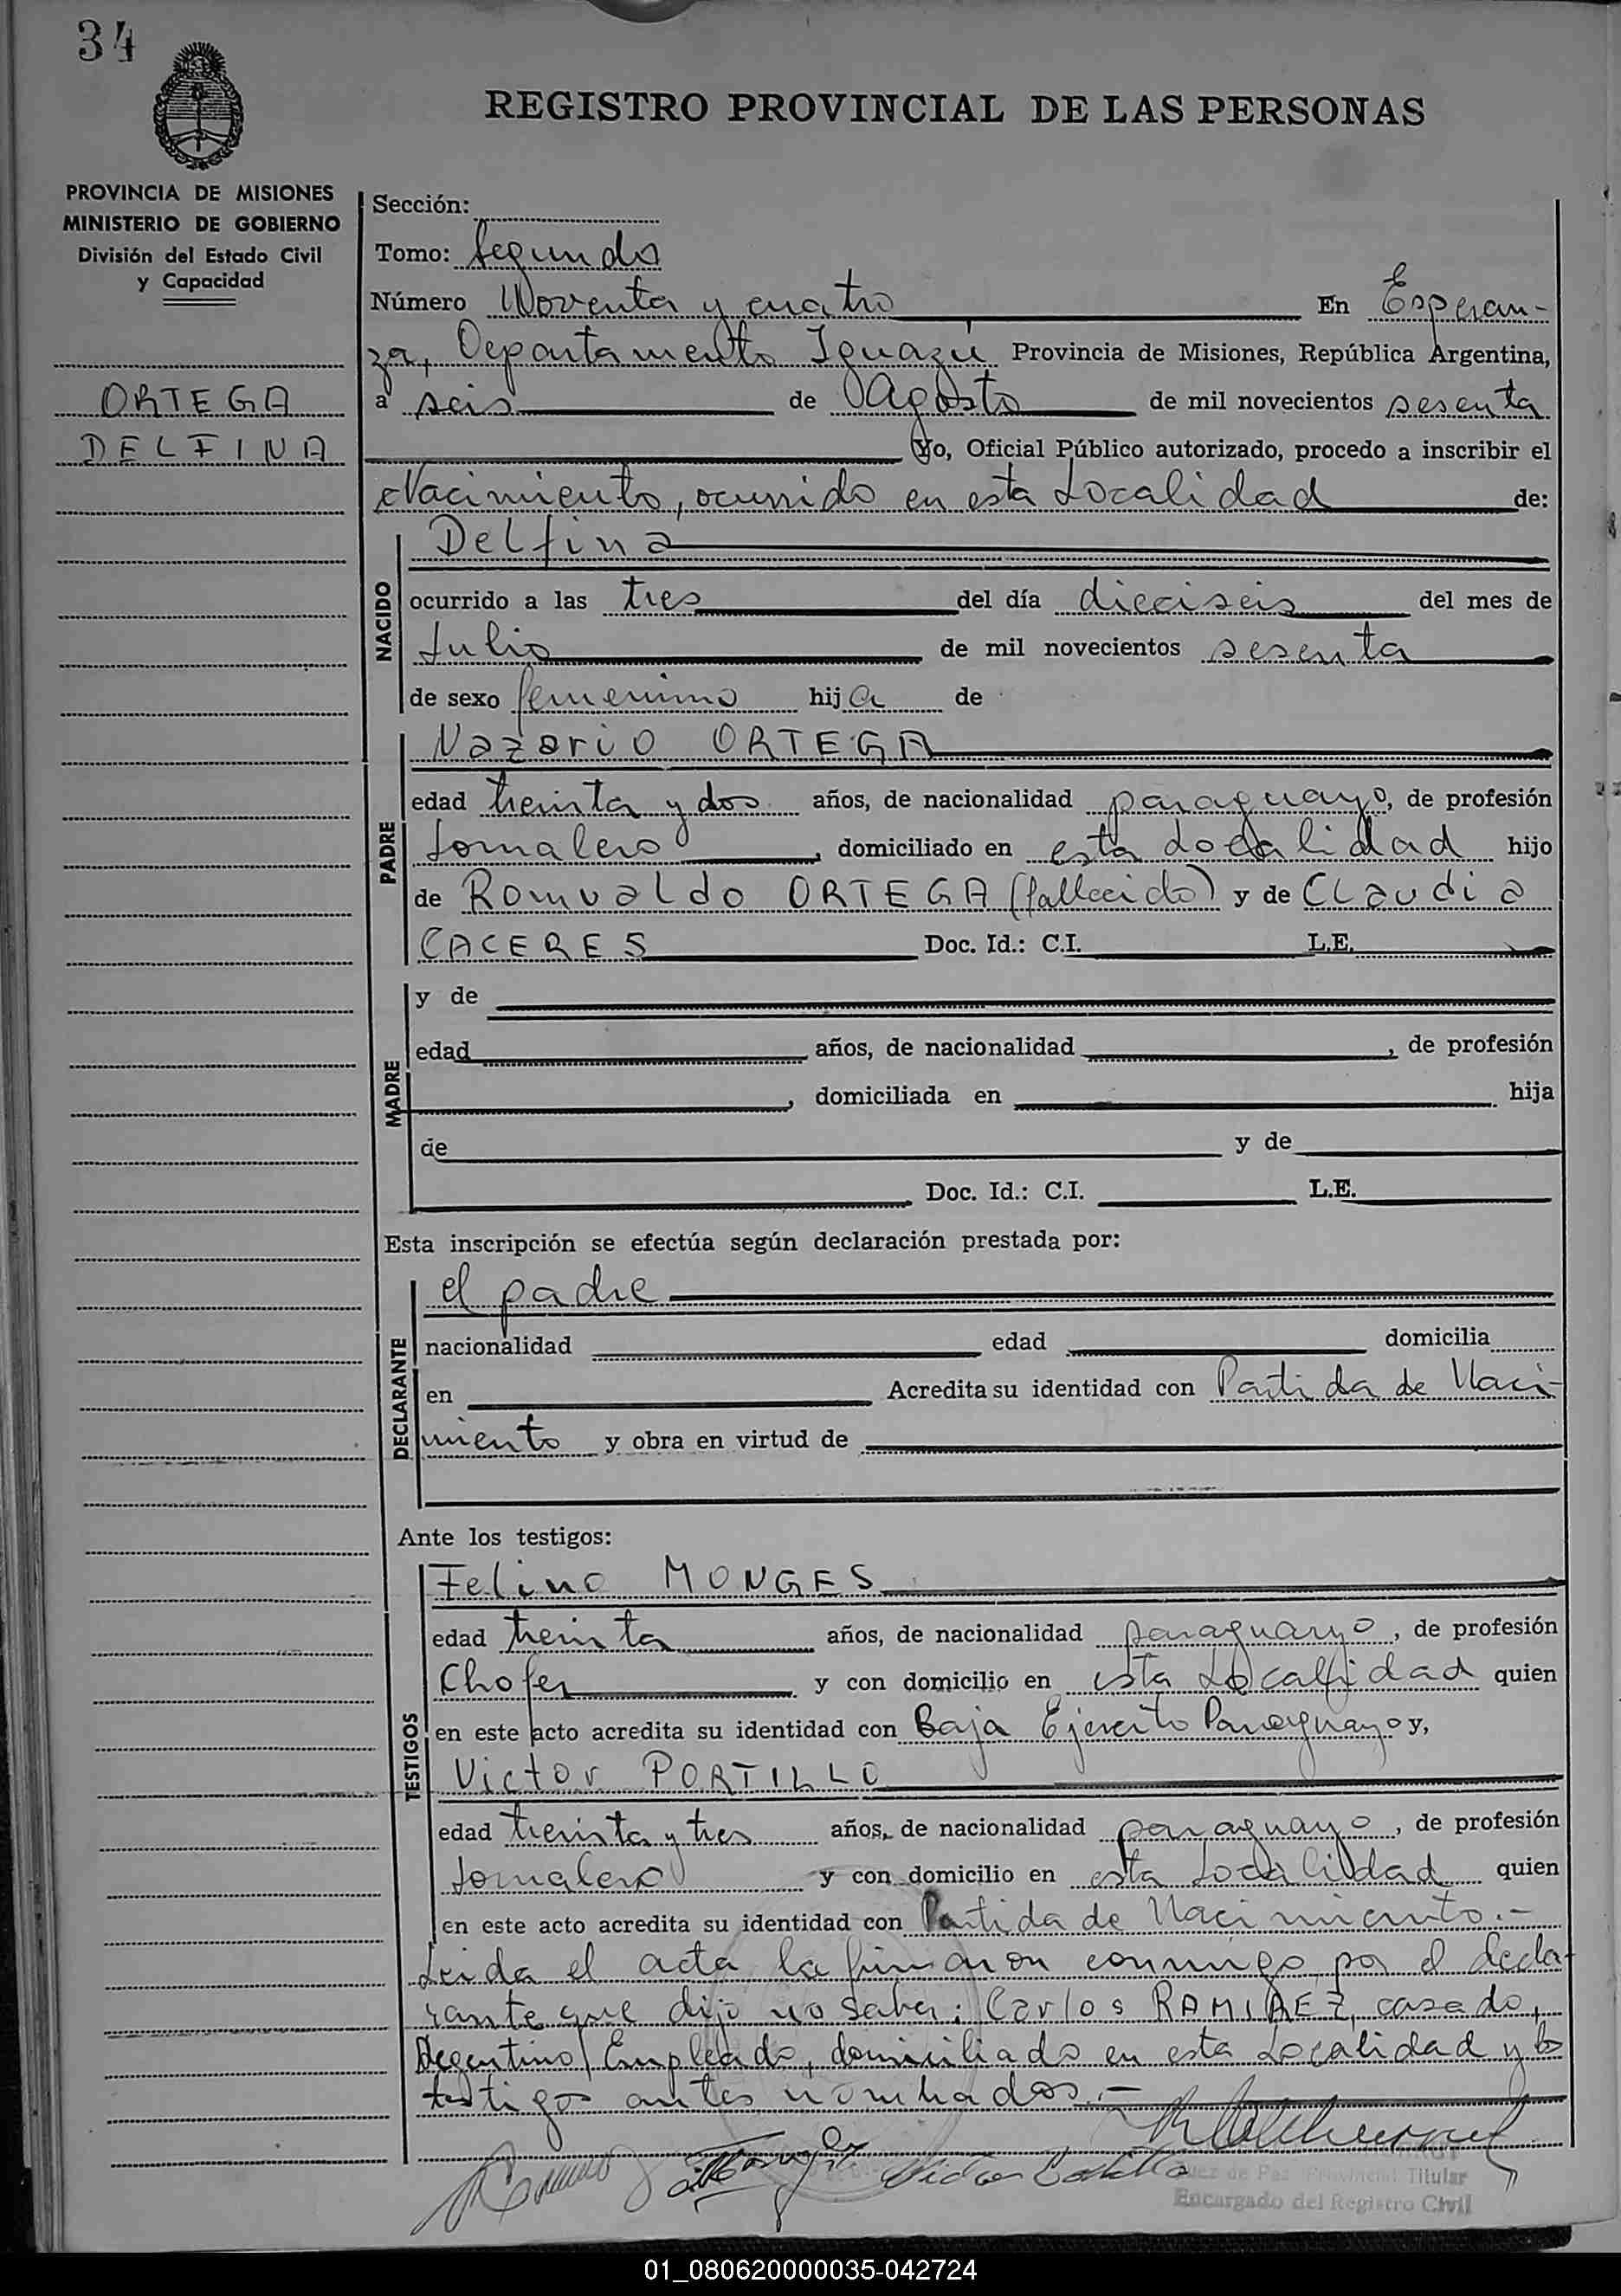 34
REGISTRO PROVINCIAL DE LAS PERSONAS
PROVINCIA DE MISIONES
MINISTERIO DE GOBIERNO
División del Estado Civil
y Capacidad
ORTEGA
DELFINA
Sección:
Tomo: Segundo
Número Noventa y cuatro En Esperan-
za, Departamento Iguazú Provincia de Misiones, República Argentina,
a seis de Agosto de mil novecientos sesenta
Yo, Oficial Público autorizado, procedo a inscribir el
Nacimiento, ocurrido en esta Localidad de:
NACIDO
Delfina
ocurrido a las tres del día dieciseis del mes de
Julio de mil novecientos sesenta
de sexo femenino hija de
PADRE
Nazario ORTEGA
edad treinta y dos años, de nacionalidad paraguayo, de profesión
Jornalero, domiciliado en esta Localidad hijo
de Romualdo ORTEGA (fallecido) y de Claudia
CACERES Doc. Id.: C.I. L.E.
MADRE
y de
edad años, de nacionalidad , de profesión
, domiciliada en hija
de y de
Doc. Id.: C.I. L.E.
Esta inscripción se efectúa según declaración prestada por:
DECLARANTE
el padre
nacionalidad edad domicilia
en Acredita su identidad con Partida de Naci-
miento y obra en virtud de
Ante los testigos:
TESTIGOS
Felino MONGES
edad treinta años, de nacionalidad paraguayo, de profesión
Chofer y con domicilio en esta Localidad quien
en este acto acredita su identidad con Baja Ejercito Paraguayo y,
Victor PORTILLO
edad treinta y tres años, de nacionalidad paraguayo, de profesión
Jornalero y con domicilio en esta Localidad quien
en este acto acredita su identidad con Partida de Nacimiento.-
Leida el acta la firmaron conmigo, por el decla-
rante que dijo no saber: Carlos RAMIREZ, casado,
Argentino, Empleado, domiciliado en esta Localidad y los
testigos antes nombrados.-
Juez de Paz Provincial Titular
Encargado del Registro Civil
01_080620000035-042724